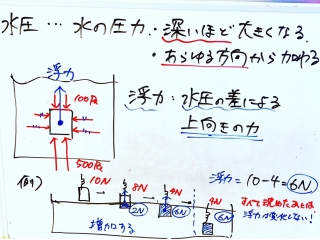 水圧…水の圧力・深いほど大きくなる.
・あらゆる方向から加わる
浮力
100Pa
500Pa
浮力:水圧の差による
上向きの力
例)
10N
8N
4N
4N
2N
6N
6N
増加する
浮力=10-4=6N
すべて沈めたあとは
浮力は変化しない!